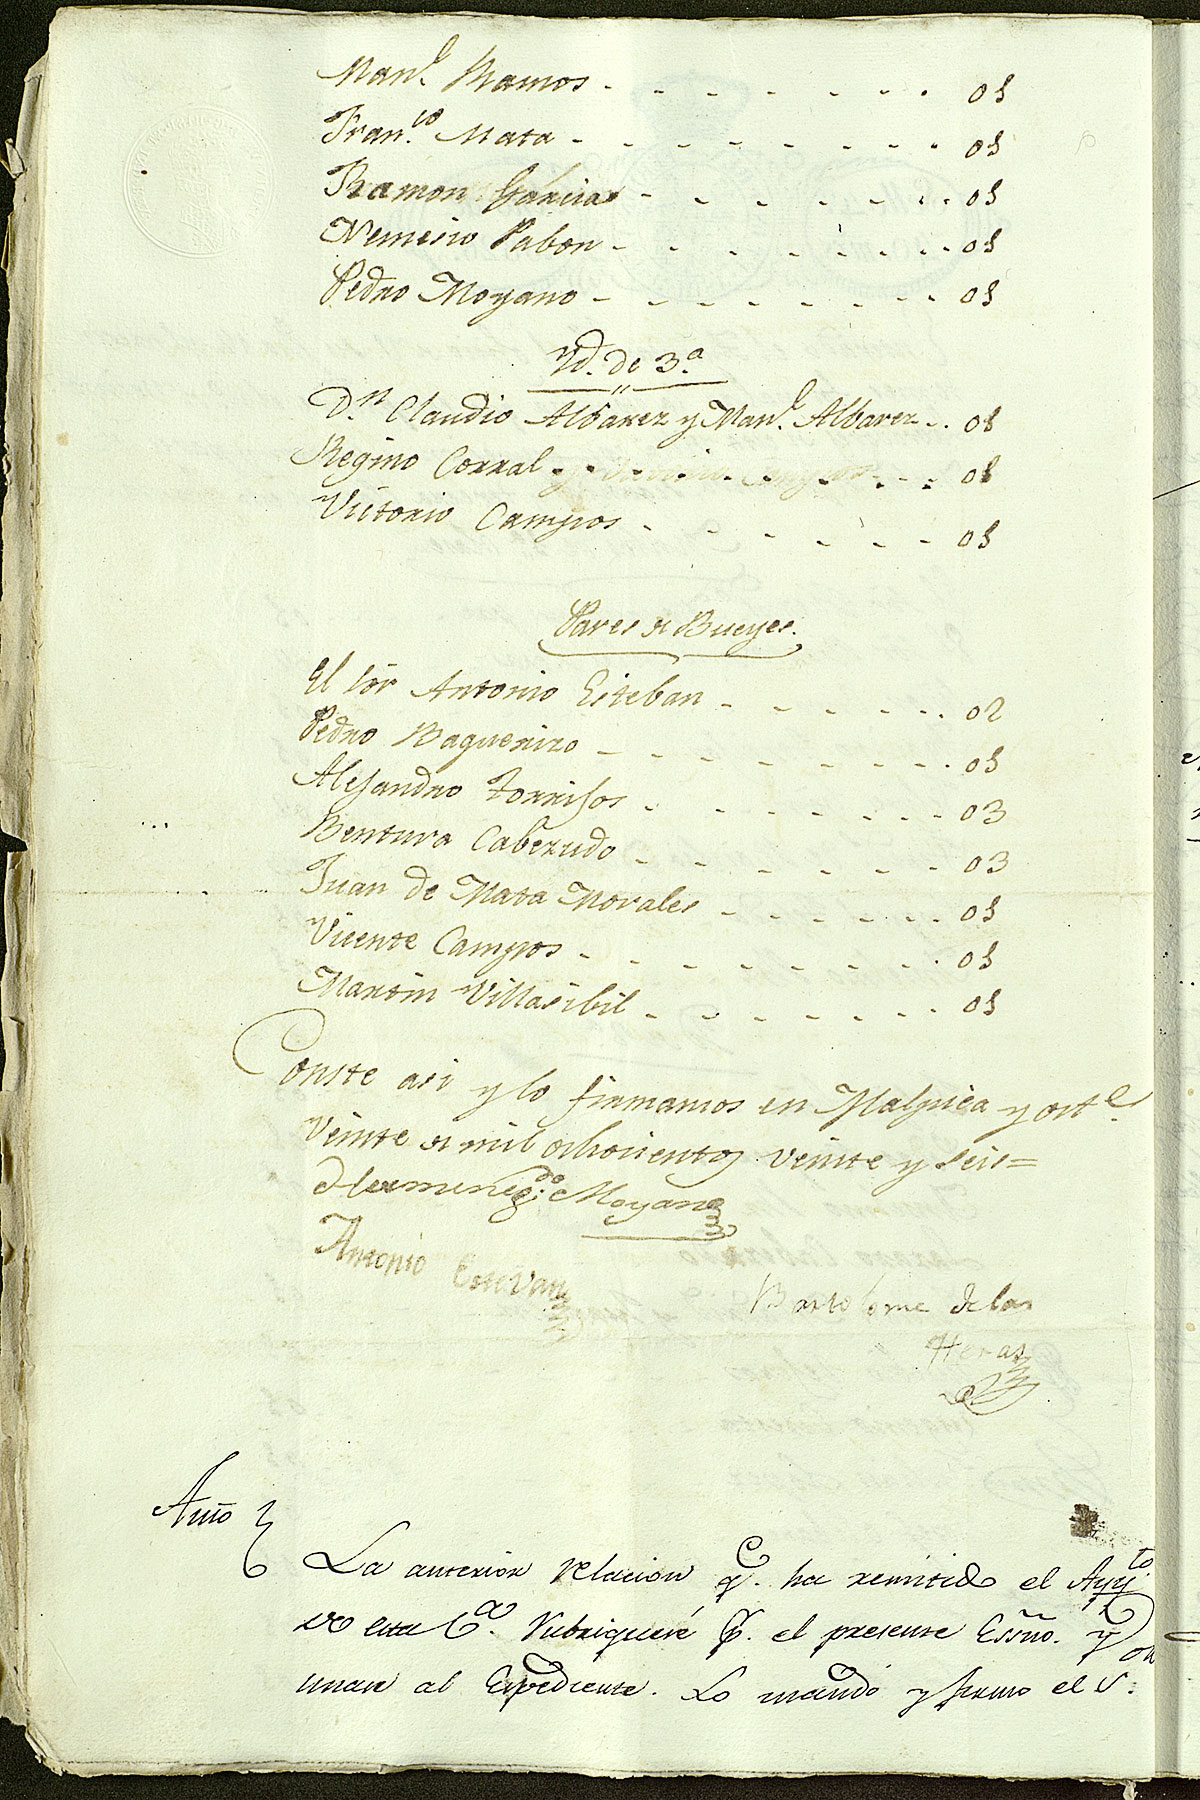 Man.l Ramos - - - - - - - 05
Fran.co Mata - - - - - - - - 05
Ramon Garcia - - - - - - - 05
Nemesio Pabon - - - - - - - 05
Pedro Moyano - - - - - - - 05
Yd. de 3.a
D.n Claudio Albarez y Man.l Albarez - . 05
Regino Corral - - - - - - - 05
Victorio Campos - - - - - - 05
Pares de Bueyes.
El Sor Antonio Esteban - - - - - - 02
Pedro Baguerizo - - - - - - - - 05
Alejandro Torrijos - - - - - - - 03
Bentura Cabezudo - - - - - - 03
Juan de Mata Morales - - - - - - 05
Vicente Campos - - - - - - - - 05
Martin Villasibil - - - - - - - 05
Conste asi y lo firmamos en Malpica y oct.e
Veinte de mil ochocientos veinte y seis=
Hermeneg.do Moyano
Antonio Estevan
Bartolome de las
Heras
Auto
La anterior relacion q.e ha remitido el Ayy.to
de esta V.a Rubriquese p.r el presente Essno. y
unase al Expediente. Lo mandó y firmo el S.or